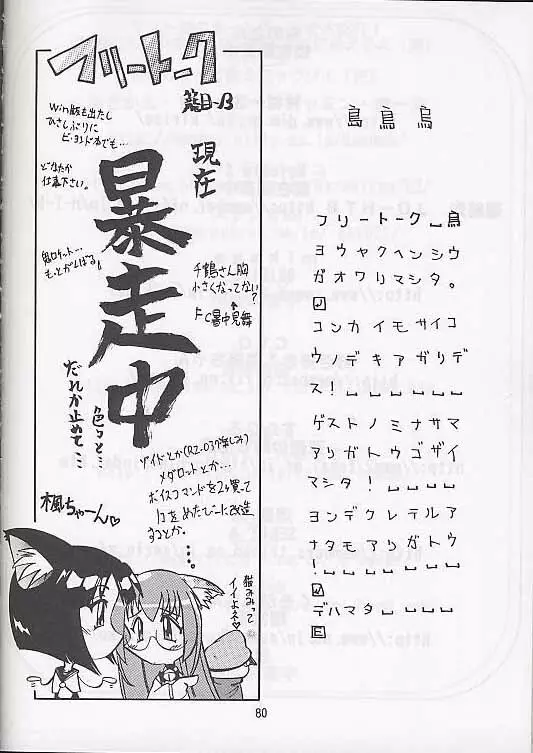 フリートーク
籠目-B
Win版も出たし
ひさしぶりに
ビ・ヨンド本でも…
どなたか
仕事下さい。
鬼ロケット…
もっとがんばる。
現在
暴走中
千鶴さん胸
小さくなってない?
FC暑中見舞
色々と…
だれか止めて…
ゾイドとか(RZ-037が楽しみ)
メダロットとか…
ボイスコマンドを2ヶ買って
するとか。
…。
楓ちゃーん♡
猫みみって
イイよネ♡
鳥 鳥 鳥
フリートーク␣鳥
ヨウヤクヘンシウ
ガオワリマシタ。
コンカイモサイコ
ウノデキアガリデ
ス!␣␣␣␣␣␣
ゲストノミナサマ
アリガトウゴザイ
マシタ!␣␣␣␣
ヨンデクレテルア
ナタモアリガトウ
!␣␣␣␣␣␣␣
デハマタ␣␣␣␣
E
80